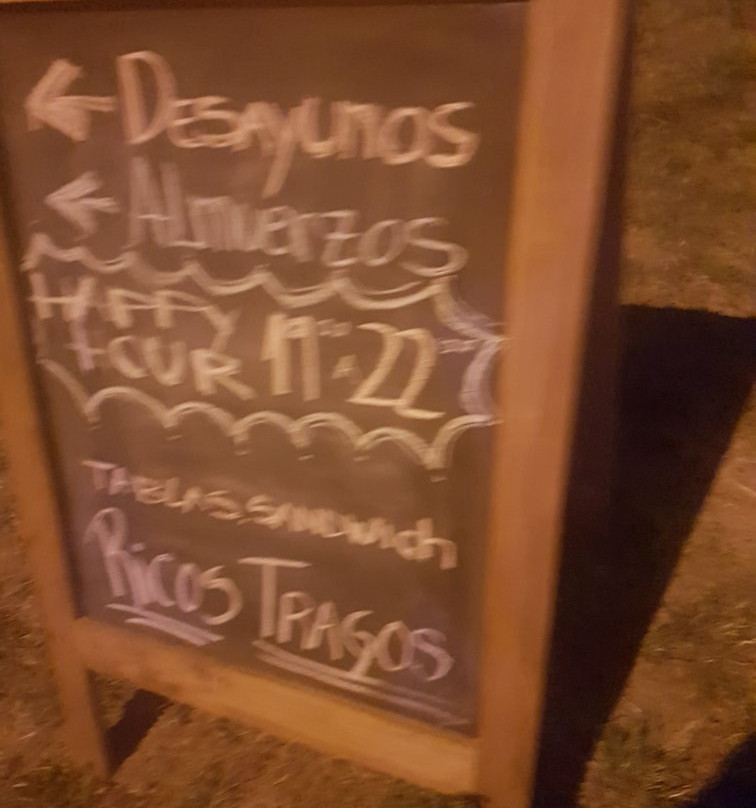 ← Desayunos
← Almuerzos
HAPPY
HOUR 19:00 A 22:00
TABLAS, SANDWich
Ricos TRAGOS